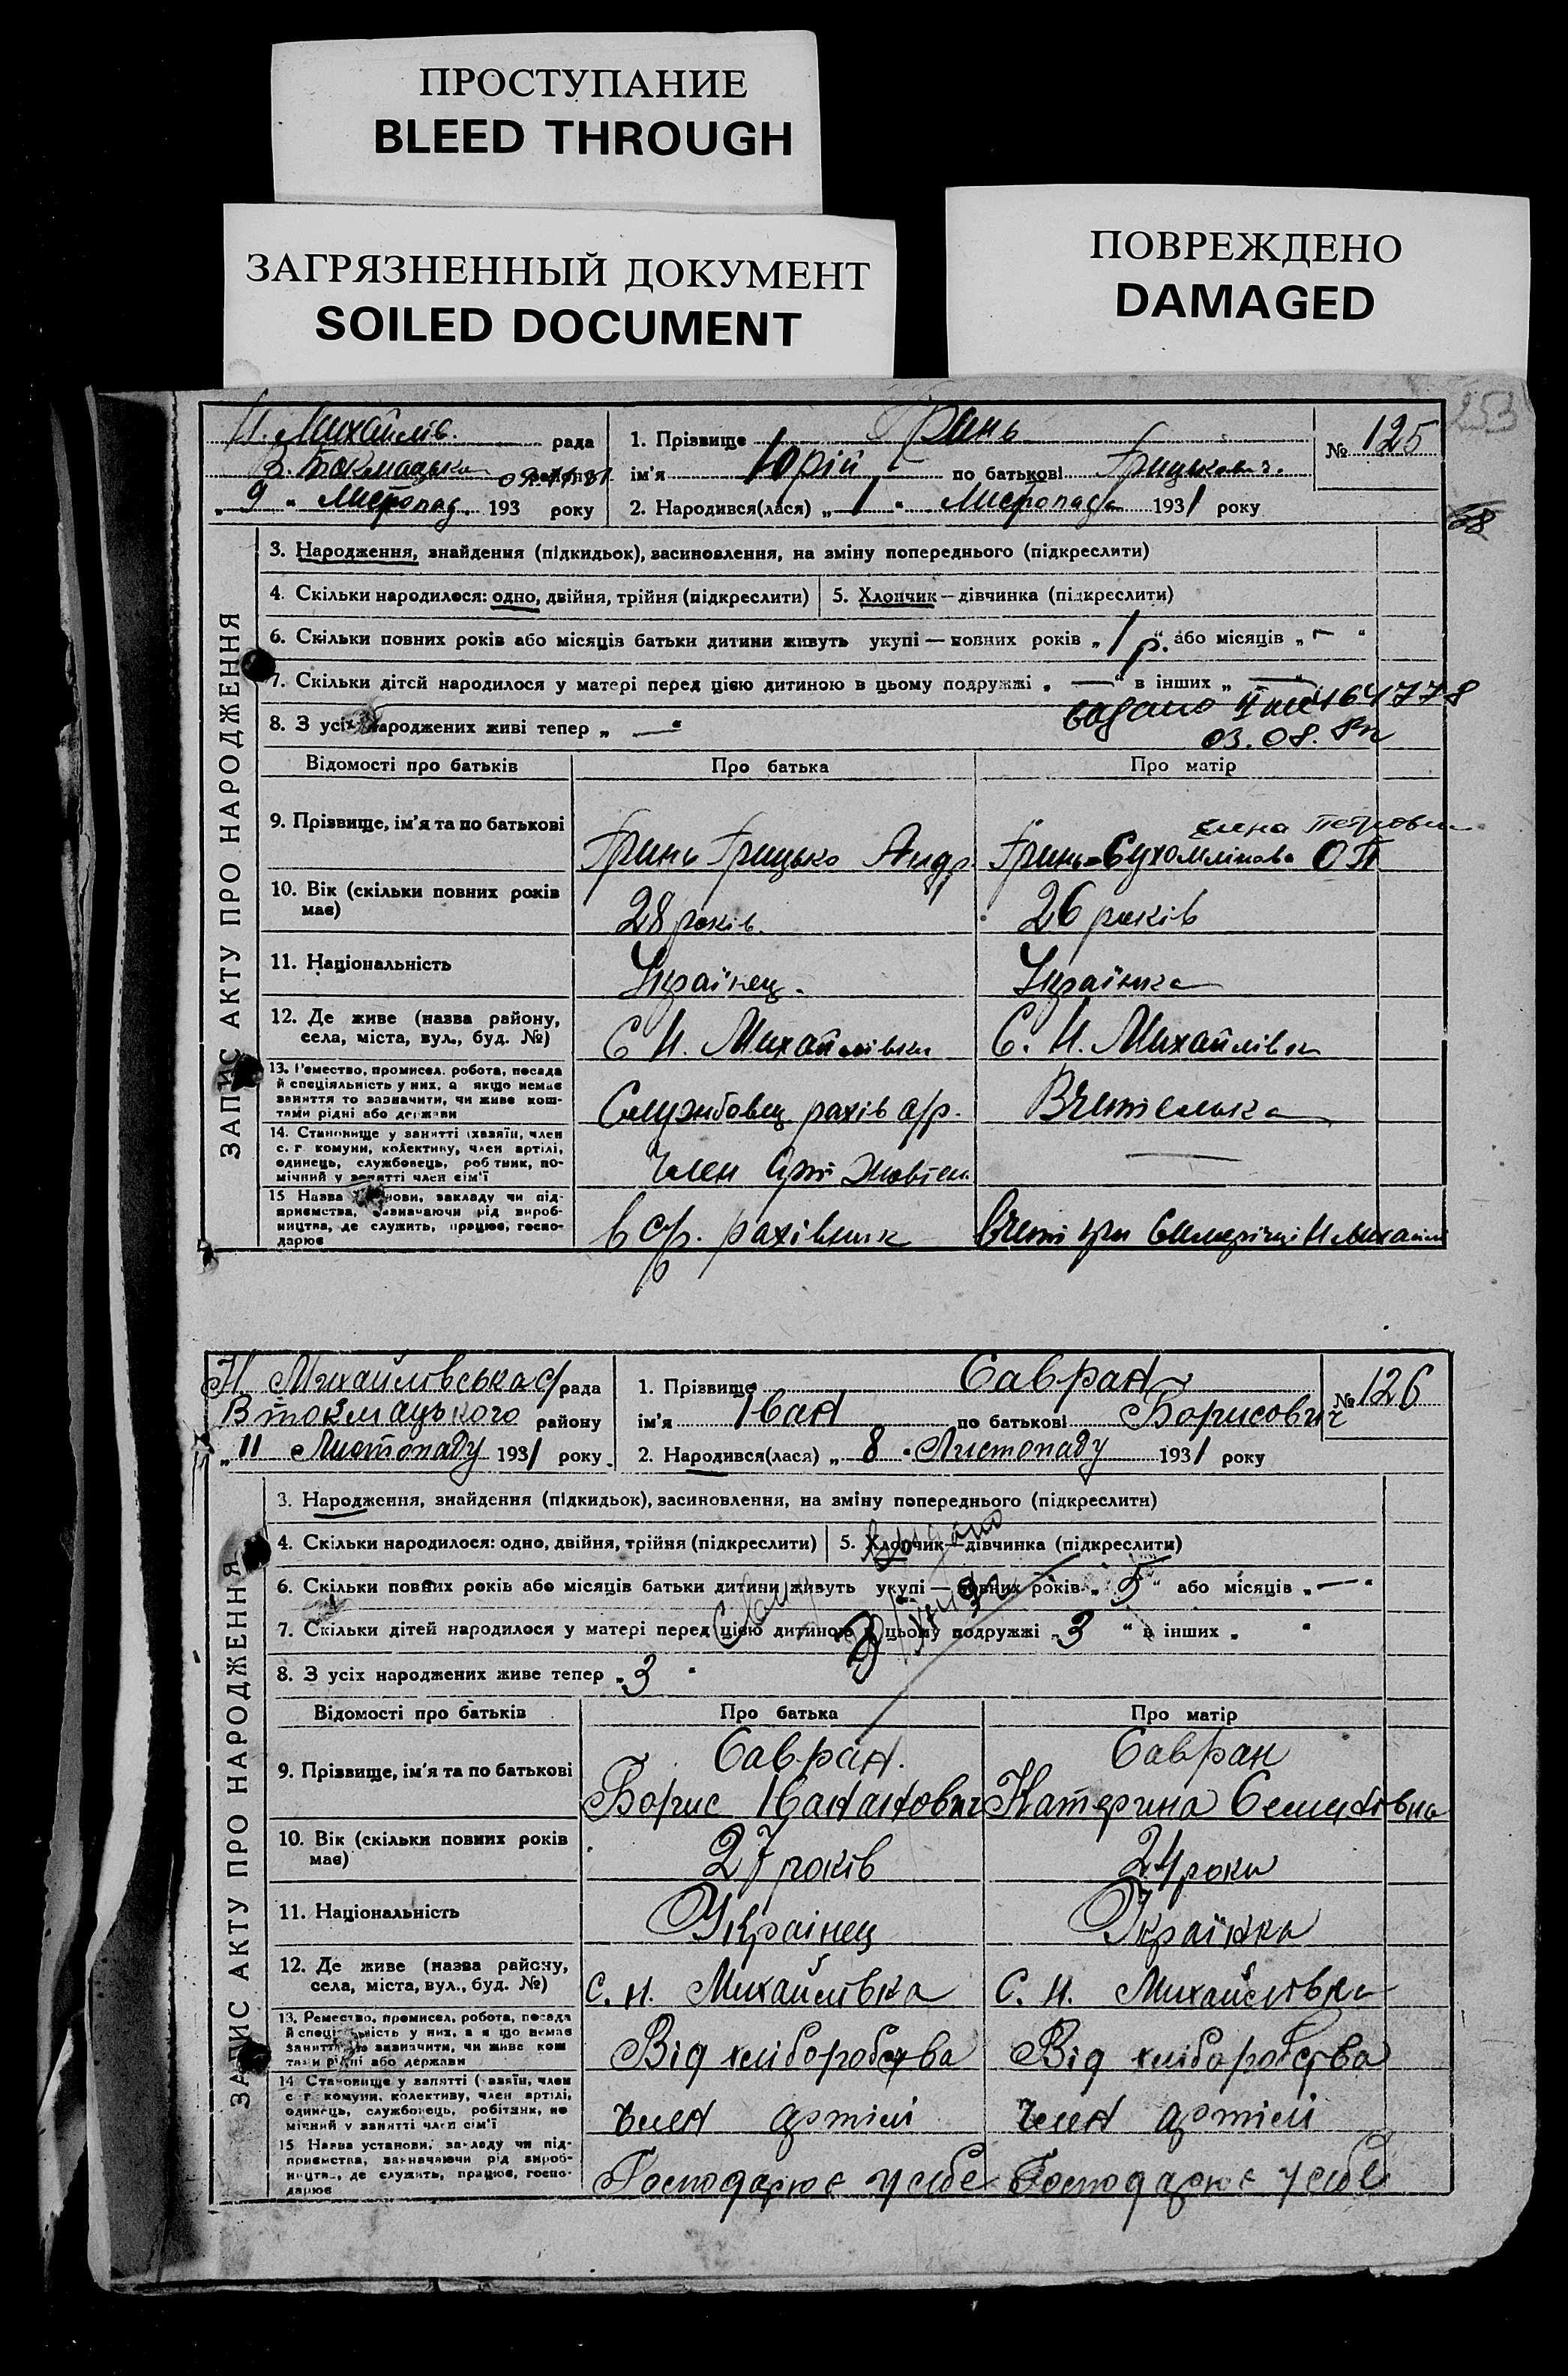 ПРОСТУПАНИЕ
BLEED THROUGH
ЗАГРЯЗНЕННЫЙ ДОКУМЕНТ
SOILED DOCUMENT
ПОВРЕЖДЕНО
DAMAGED
253
Н. Михайлів. рада
В. Токмацька
„ 9 " Листопад. 193 року
1. Прізвище Гринь
ім'я Юрій по батькові Грицькович.
№ 125
2. Народився(лася) „ 1 " Листопада 1931 року
58
ЗАПИС АКТУ ПРО НАРОДЖЕННЯ
3. Народження, знайдення (підкидьок), засиновлення, на зміну попереднього (підкреслити)
4. Скільки народилося: одно, двійня, трійня (підкреслити) 5. Хлопчик — дівчинка (підкреслити)
6. Скільки повних років або місяців батьки дитини живуть укупі — повних років „ 1 р. " або місяців „ — "
7. Скільки дітей народилося у матері перед цією дитиною в цьому подружжі „ — " в інших „ — "
8. З усіх народжених живі тепер „ — "
164778
03.08.
Відомості про батьків Про батька Про матір
9. Прізвище, ім'я та по батькові
Елена Петровна
Гринь Грицько Андр. Гринь-Сухомлінова О П
10. Вік (скільки повних років має)
28 років. 26 років
11. Національність
Українец. Українка
12. Де живе (назва району, села, міста, вул., буд. №)
С Н. Михайлівки С. Н. Михайлівка
13. Ремество, промисел, робота, посада й спеціяльність у них, а якщо немає заняття то зазначити, чи живе коштами рідні або держави
Службовец рахів с/р. Вчителька
14. Становище у занятті (хазяїн, член с.-г. комуни, колективу, член артілі, одинець, службовець, робітник, помічний у занятті член сім'ї
Член Арт —
15 Назва установи, закладу чи підприємства, зазначаючи рід виробництва, де служить, працює, господарює
в с/р. рахівник
Н Михайловська с/рада
В токмацького району
„ 11 Листопаду 1931 року
1. Прізвище Савран
ім'я Іван по батькові Борисович
№ 126
2. Народився(лася) „ 8 " Листопаду 1931 року
ЗАПИС АКТУ ПРО НАРОДЖЕННЯ
3. Народження, знайдення (підкидьок), засиновлення, на зміну попереднього (підкреслити)
4. Скільки народилося: одно, двійня, трійня (підкреслити) 5. Хлопчик — дівчинка (підкреслити)
6. Скільки повних років або місяців батьки дитини живуть укупі — повних років „ 5 " або місяців „ — "
7. Скільки дітей народилося у матері перед цією дитиною в цьому подружжі „ 3 " в інших „ "
8. З усіх народжених живе тепер „ 3 "
Відомості про батьків Про батька Про матір
9. Прізвище, ім'я та по батькові
Савран. Савран
Борис Іванович Катерина Семеновна
10. Вік (скільки повних років має)
27 років 24 роки
11. Національність
Українец Українка
12. Де живе (назва району, села, міста, вул., буд. №)
С. Н. Михайлівка С. Н. Михайлівка
13. Ремество, промисел, робота, посада й спеціяльність у них, а якщо немає заняття то зазначити, чи живе коштами рідні або держави
Від хліборобства Від хліборобства
14 Становище у занятті (хазяїн, член с.-г. комуни, колективу, член артілі, одинець, службовець, робітник, помічний у занятті член сім'ї
член артілі член артілі
15 Назва установи, закладу чи підприємства, зазначаючи рід виробництва, де служить, працює, господарює
Господарює у себе Господарює у себе